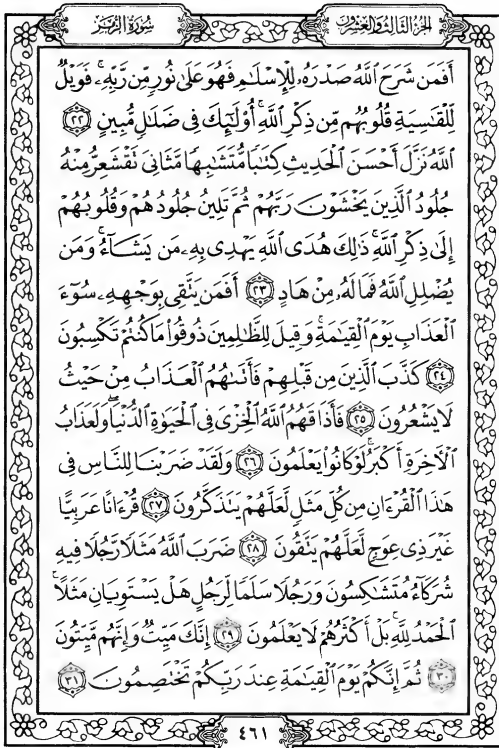 الجزء الثالث والعشرون
سورة الزمر
أَفَمَن شَرَحَ ٱللَّهُ صَدْرَهُۥ لِلْإِسْلَٰمِ فَهُوَ عَلَىٰ نُورٍ مِّن رَّبِّهِۦ ۚ فَوَيْلٌ
لِّلْقَٰسِيَةِ قُلُوبُهُم مِّن ذِكْرِ ٱللَّهِ ۚ أُو۟لَٰٓئِكَ فِى ضَلَٰلٍ مُّبِينٍ ﴿٢٢﴾
ٱللَّهُ نَزَّلَ أَحْسَنَ ٱلْحَدِيثِ كِتَٰبًا مُّتَشَٰبِهًا مَّثَانِىَ تَقْشَعِرُّ مِنْهُ
جُلُودُ ٱلَّذِينَ يَخْشَوْنَ رَبَّهُمْ ثُمَّ تَلِينُ جُلُودُهُمْ وَقُلُوبُهُمْ
إِلَىٰ ذِكْرِ ٱللَّهِ ۚ ذَٰلِكَ هُدَى ٱللَّهِ يَهْدِى بِهِۦ مَن يَشَآءُ ۚ وَمَن
يُضْلِلِ ٱللَّهُ فَمَا لَهُۥ مِنْ هَادٍ ﴿٢٣﴾ أَفَمَن يَتَّقِى بِوَجْهِهِۦ سُوٓءَ
ٱلْعَذَابِ يَوْمَ ٱلْقِيَٰمَةِ ۚ وَقِيلَ لِلظَّٰلِمِينَ ذُوقُوا۟ مَا كُنتُمْ تَكْسِبُونَ
﴿٢٤﴾ كَذَّبَ ٱلَّذِينَ مِن قَبْلِهِمْ فَأَتَىٰهُمُ ٱلْعَذَابُ مِنْ حَيْثُ
لَا يَشْعُرُونَ ﴿٢٥﴾ فَأَذَاقَهُمُ ٱللَّهُ ٱلْخِزْىَ فِى ٱلْحَيَوٰةِ ٱلدُّنْيَا ۖ وَلَعَذَابُ
ٱلْءَاخِرَةِ أَكْبَرُ ۚ لَوْ كَانُوا۟ يَعْلَمُونَ ﴿٢٦﴾ وَلَقَدْ ضَرَبْنَا لِلنَّاسِ فِى
هَٰذَا ٱلْقُرْءَانِ مِن كُلِّ مَثَلٍ لَّعَلَّهُمْ يَتَذَكَّرُونَ ﴿٢٧﴾ قُرْءَانًا عَرَبِيًّا
غَيْرَ ذِى عِوَجٍ لَّعَلَّهُمْ يَتَّقُونَ ﴿٢٨﴾ ضَرَبَ ٱللَّهُ مَثَلًا رَّجُلًا فِيهِ
شُرَكَآءُ مُتَشَٰكِسُونَ وَرَجُلًا سَلَمًا لِّرَجُلٍ هَلْ يَسْتَوِيَانِ مَثَلًا ۚ
ٱلْحَمْدُ لِلَّهِ ۚ بَلْ أَكْثَرُهُمْ لَا يَعْلَمُونَ ﴿٢٩﴾ إِنَّكَ مَيِّتٌ وَإِنَّهُم مَّيِّتُونَ
﴿٣٠﴾ ثُمَّ إِنَّكُمْ يَوْمَ ٱلْقِيَٰمَةِ عِندَ رَبِّكُمْ تَخْتَصِمُونَ ﴿٣١﴾
٤٦١